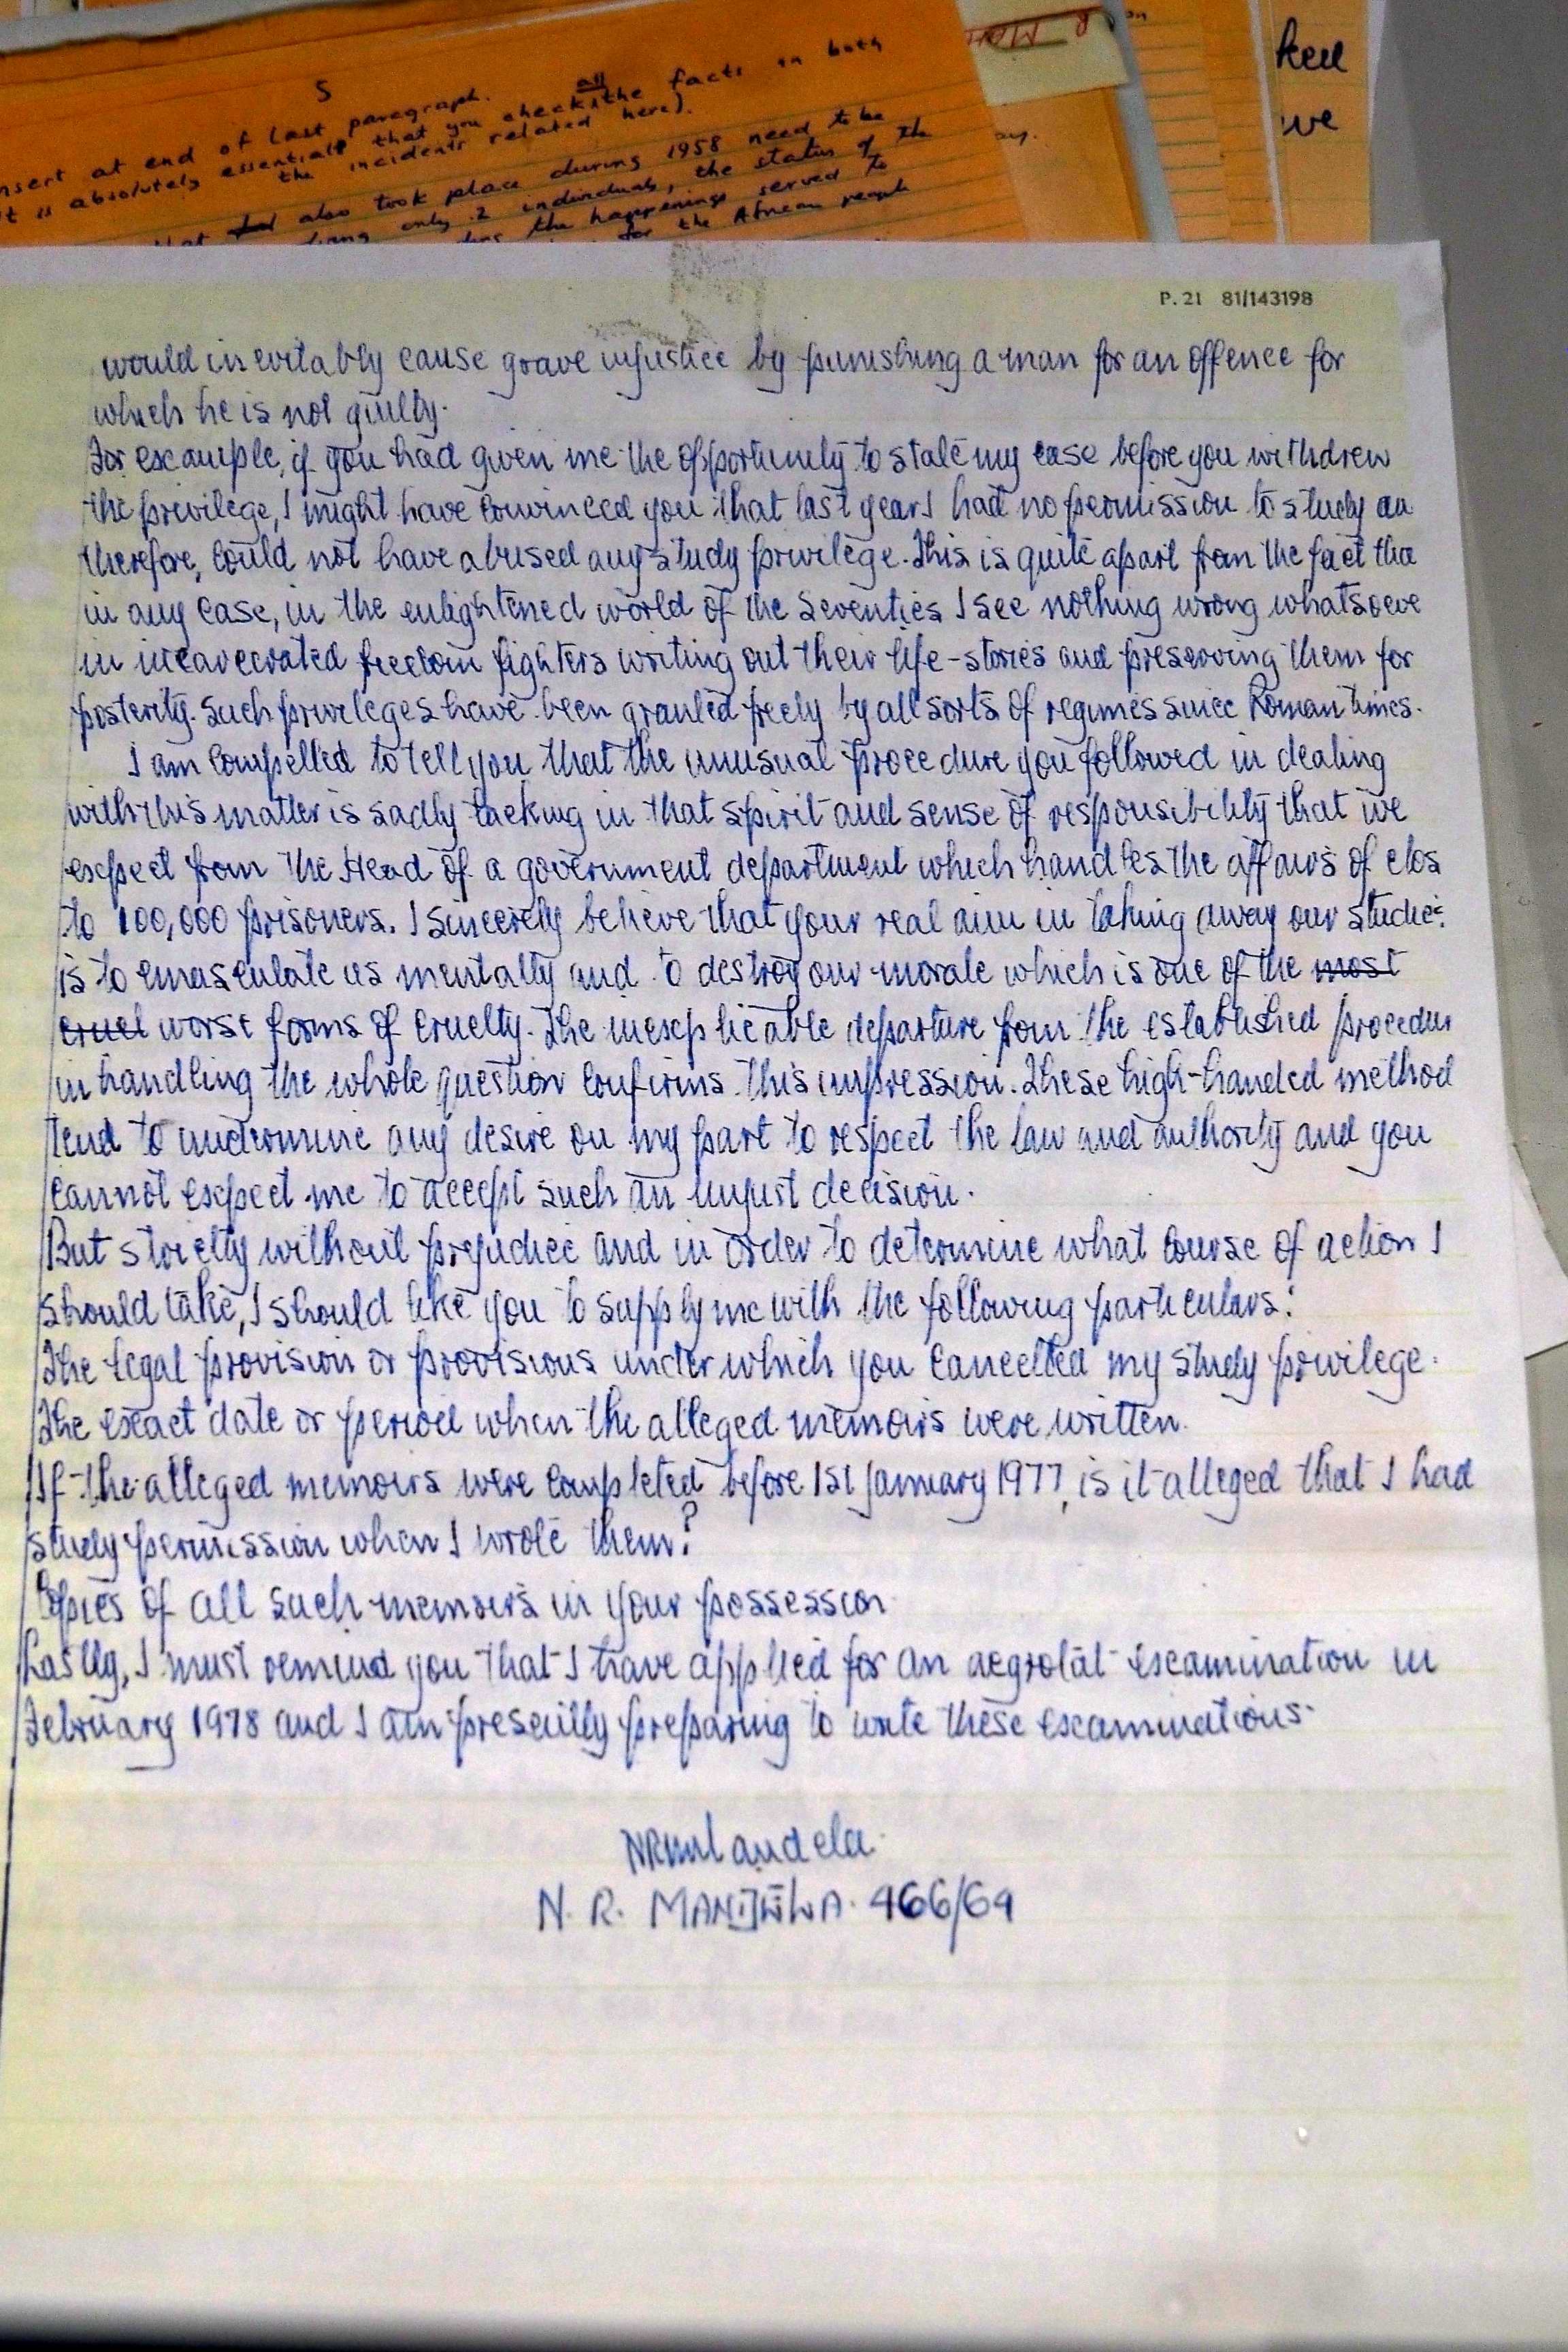 5
nsert at end of last paragraph.
t is absolutely essential that you check all the facts in both
the incidents related here).
that also took place during 1958 need to be
only 2 individuals, the status of the
the happenings served to
for the African people
ken
we
P. 21 81/143198
would inevitably cause grave injustice by punishing a man for an offence for
which he is not guilty.
For example, if you had given me the opportunity to state my case before you withdrew
the privilege, I might have convinced you that last year I had no permission to study an
therefore, could not have abused any study privilege. This is quite apart from the fact tha
in any case, in the enlightened world of the seventies I see nothing wrong whatsoeve
in incarcerated freedom fighters writing out their life-stories and preserving them for
posterity. Such privileges have been granted freely by all sorts of regimes since Roman times.
I am compelled to tell you that the unusual procedure you followed in dealing
with this matter is sadly lacking in that spirit and sense of responsibility that we
expect from the Head of a government department which handles the affairs of clos
to 100,000 prisoners. I sincerely believe that your real aim in taking away our studies
is to emasculate us mentally and to destroy our morale which is one of the most
cruel worst forms of cruelty. The inexplicable departure from the established procedur
in handling the whole question confirms this impression. These high-handed method
tend to undermine any desire on my part to respect the law and authority and you
cannot expect me to accept such an unjust decision.
But strictly without prejudice and in order to determine what course of action I
should take, I should like you to supply me with the following particulars:
The legal provision or provisions under which you cancelled my study privilege.
The exact date or period when the alleged memoirs were written.
If the alleged memoirs were completed before 1st January 1977, is it alleged that I had
study permission when I wrote them?
Copies of all such memoirs in your possession
Lastly, I must remind you that I have applied for an aegrotat examination in
February 1978 and I am presently preparing to write these examinations.
NRMandela
N. R. MANDELA. 466/64